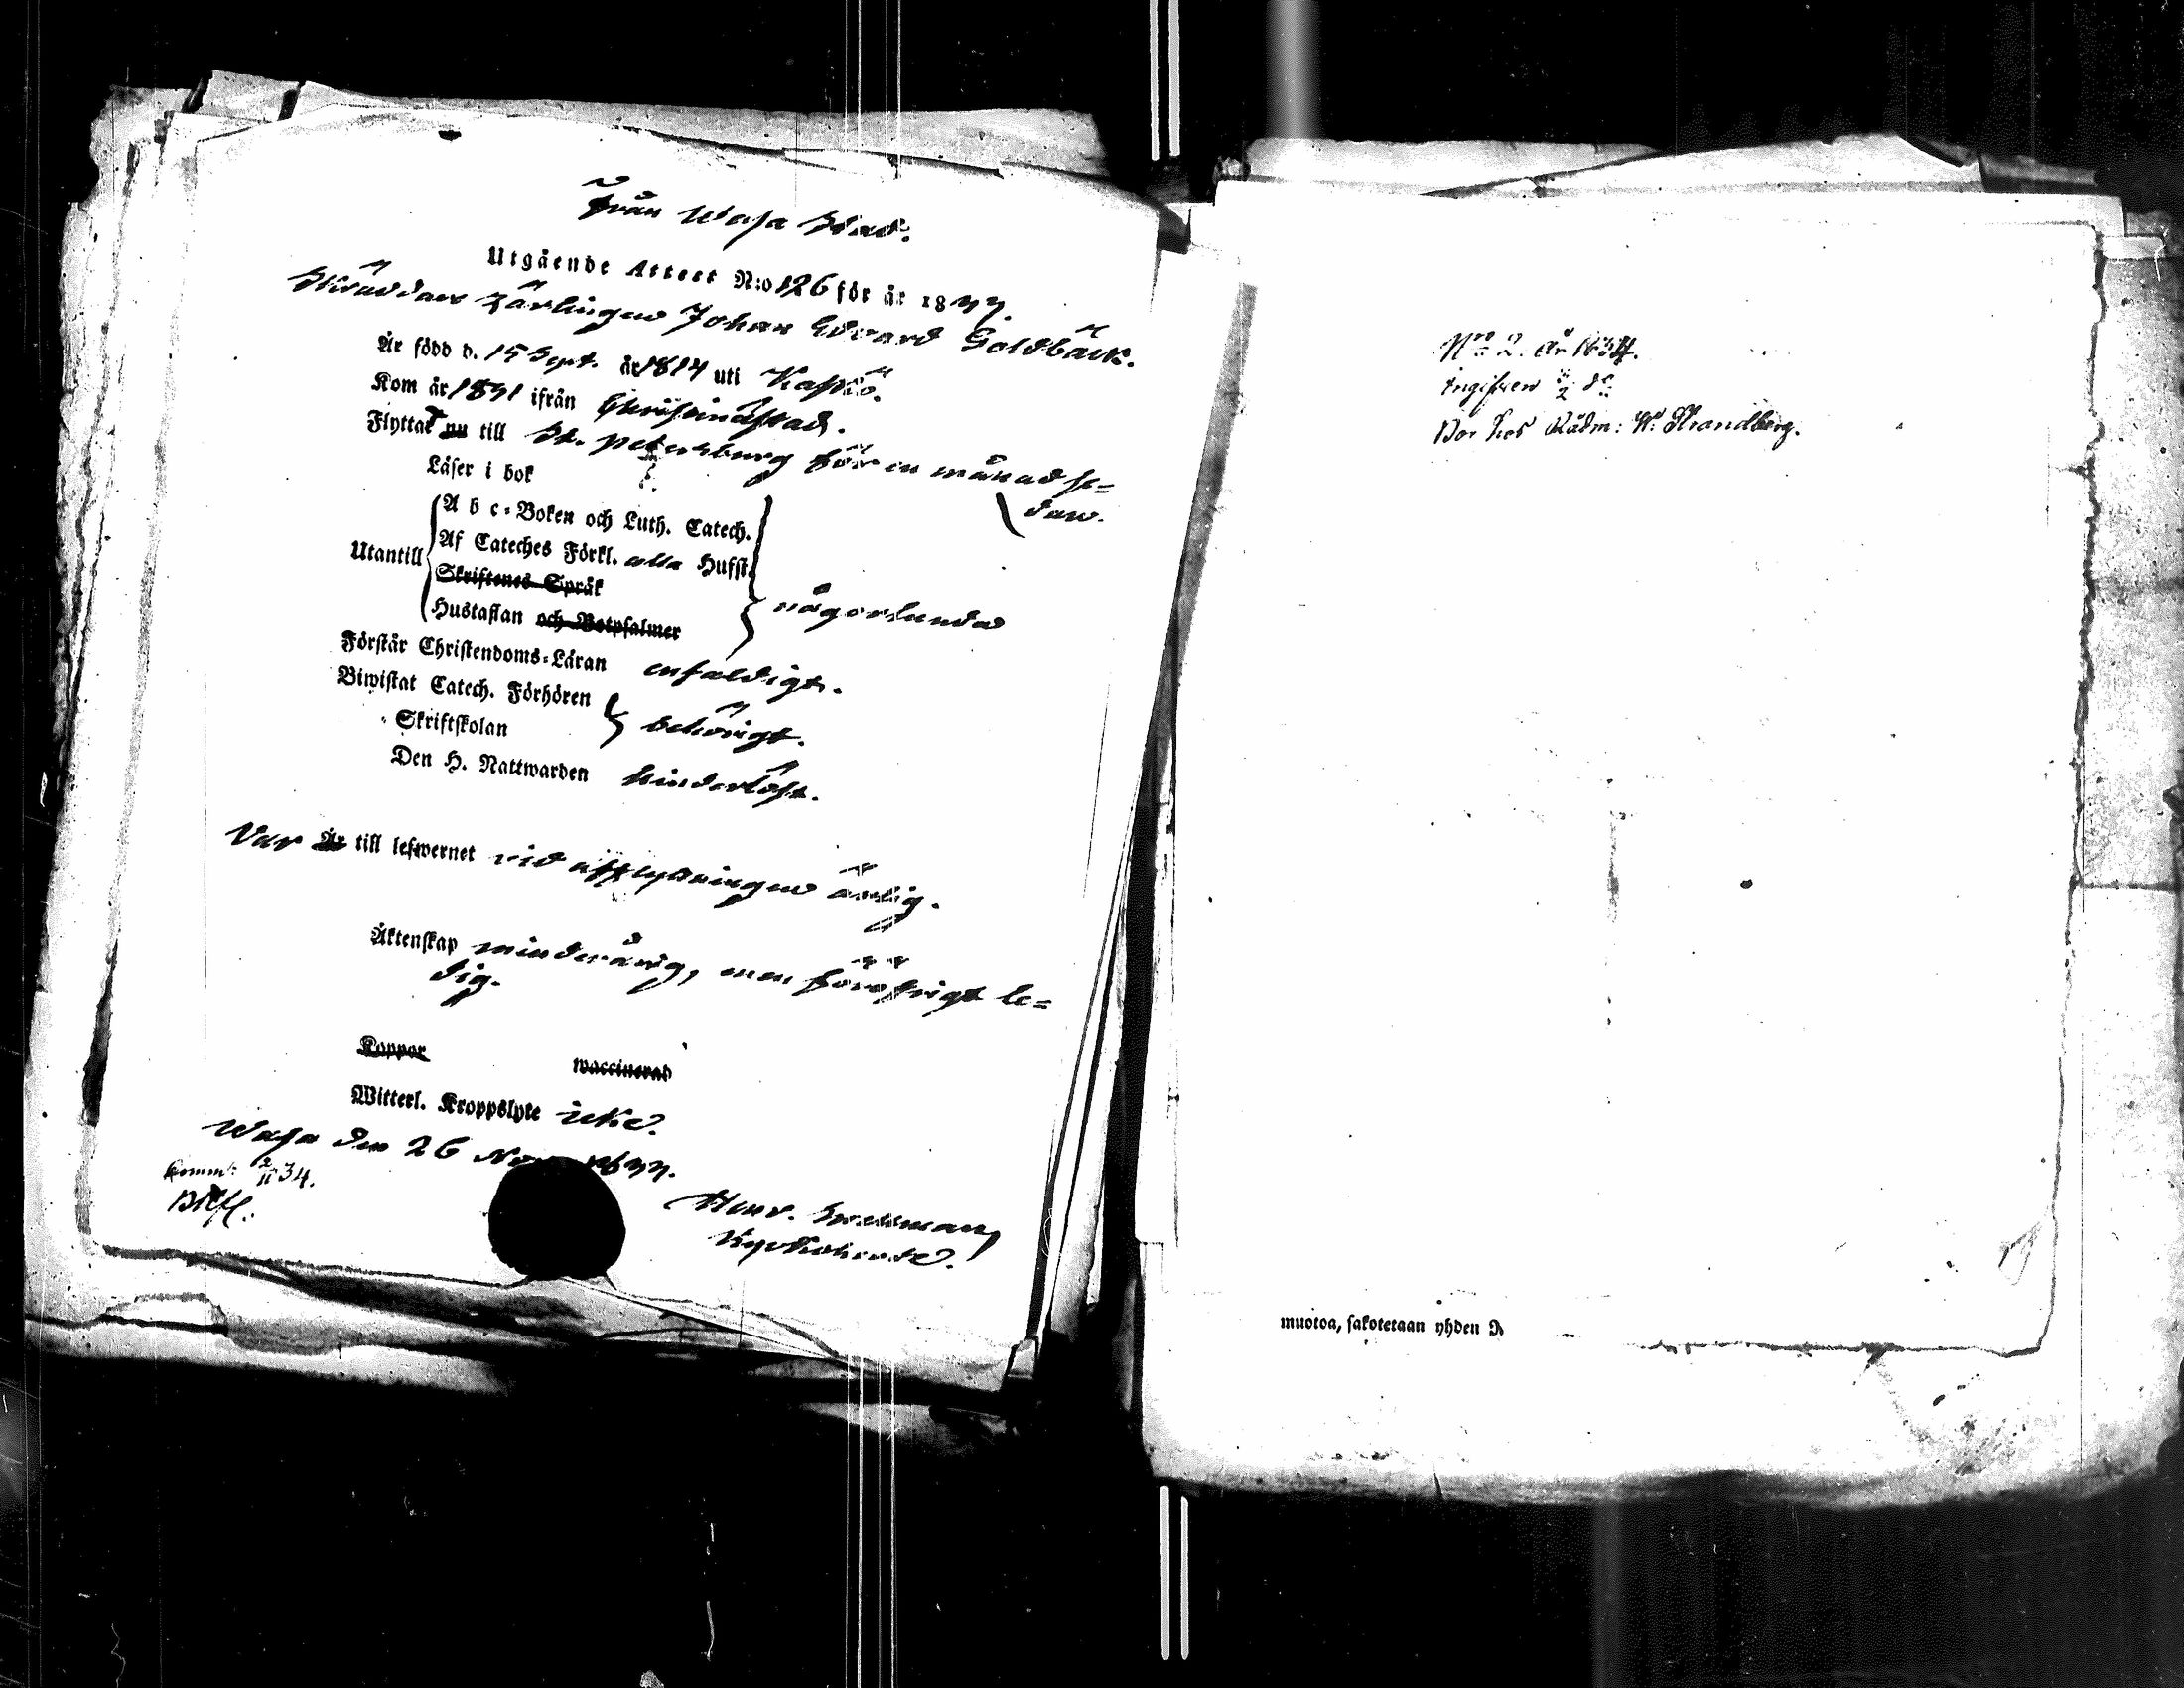 Från Wasa Stad.
Utgående Attest N:o 126 för år 1833.
Skräddare Lärlingen Johan Edvard Goldbäck.
Är född d. 15 Sept. år 1814 uti Kaskö.
Kom år 1831 ifrån Christinæstad.
Flyttat nu till St. Petersburg för en månad se=
dan.
Läser i bok
A b c=Boken och Luth. Catech.
Af Cateches Förkl. alla Hufst.
Utantill
Skriftenes Språk
Hustaflan och Botpsalmer
någorlunda
Förstår Christendoms=Läran enfaldigt.
Biwistat Catech. Förhören
Skriftskolan
behörigt.
Den H. Nattwarden hinderlöst.
Var Är till lefwernet vid afflyttningen ärlig.
Äktenskap minderårig, men föröfrigt le=
dig.
Koppor waccinerad
Witterl. Kroppslyte icke.
Wasa den 26 Nov. 1833.
34.
Henr.
Kyrkoherde.
N:ro 2. År 1834.
Ingifven
Bor hos Rådm: W: Strandberg.
muotoa, sakotetaan yhden R